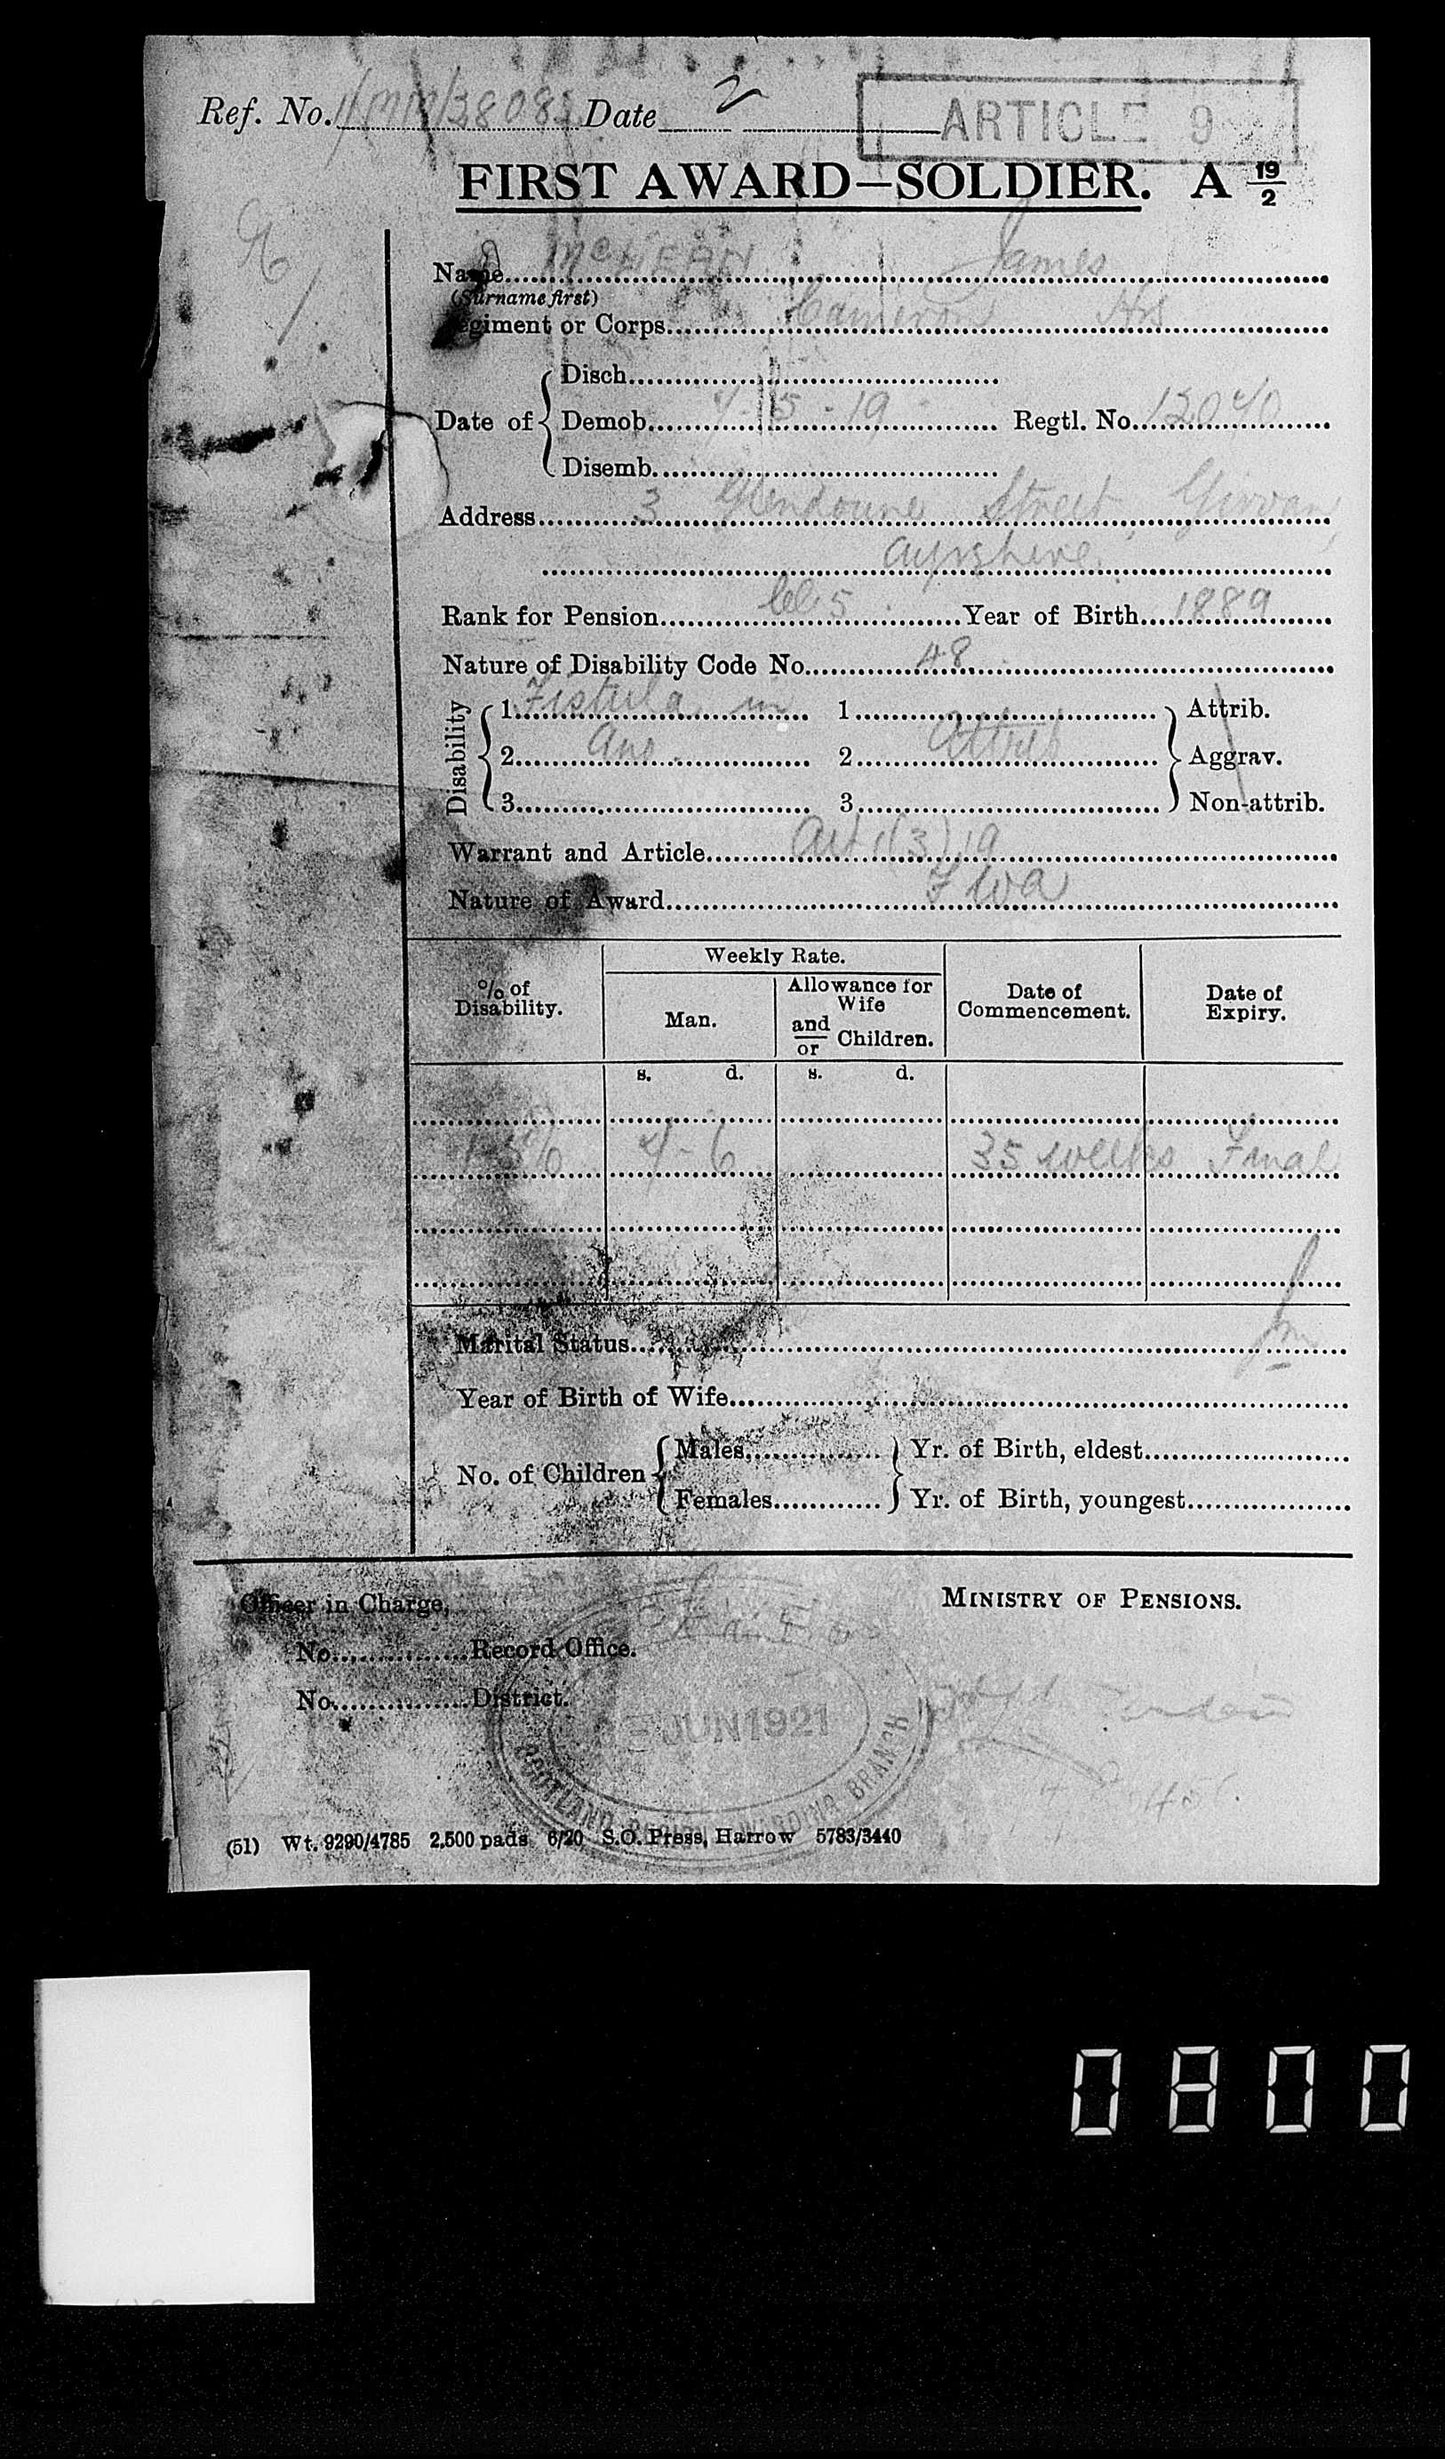 Ref. No. 11/MM/3808 Date 2 ARTICLE 9
FIRST AWARD—SOLDIER. A 19/2
Name McHEAN James
(Surname first)
Regiment or Corps Cameron Hrs
Disch.
Date of Demob. 4-5-19 Regtl. No. 12040
Disemb.
Address 3 Glendoune Street, Girvan,
Ayrshire.
Rank for Pension Cl 5. Year of Birth 1889
Nature of Disability Code No. 48
Disability 1 Fistula in 1 Attrib.
2 Ano 2 Attrib Aggrav.
3 3 Non-attrib.
Warrant and Article Art 1(3) 19
Nature of Award F W A
% of Disability. Weekly Rate. Man. Allowance for Wife and/or Children. Date of Commencement. Date of Expiry.
s. d. s. d.
1-5% 4-6 35 weeks Final
Marital Status
Year of Birth of Wife
No. of Children Males Yr. of Birth, eldest
Females Yr. of Birth, youngest
Officer in Charge, MINISTRY OF PENSIONS.
No. Record Office.
No. District.
JUN 1921
SCOTLAND BRANCH
(51) Wt. 9290/4785 2,500 pads 6/20 S.O. Press, Harrow 5783/3440
0800